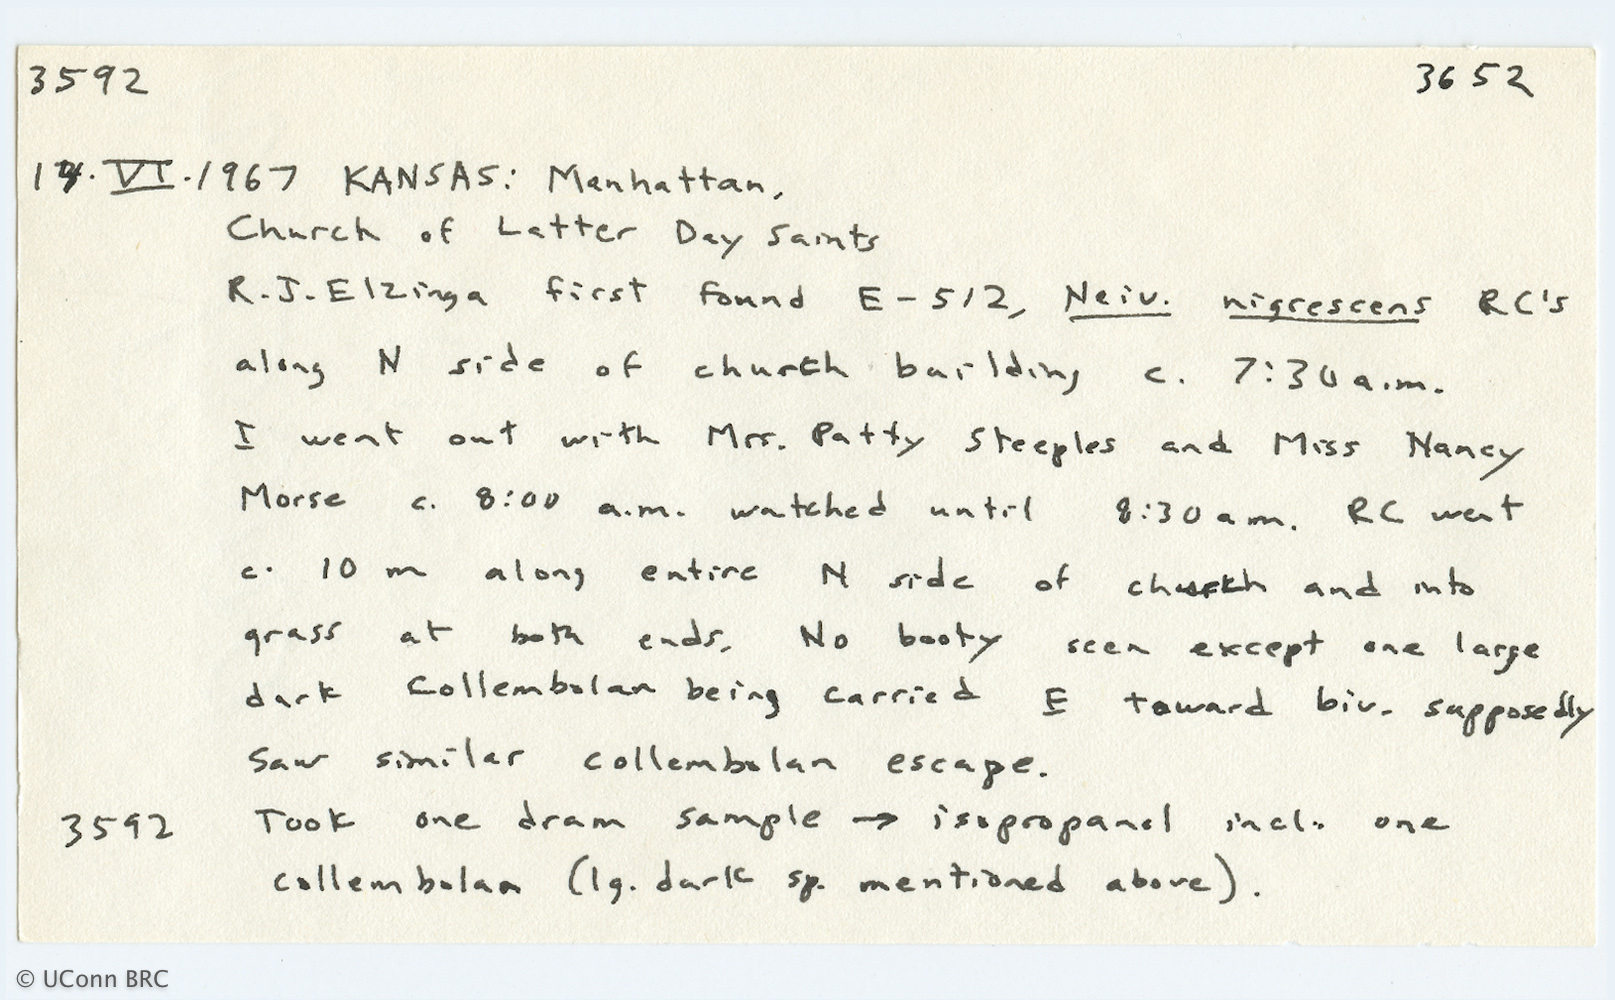 3592 3652
14.VI.1967 KANSAS: Manhattan,
Church of Latter Day Saints
R.J. Elzinga first found E-512, Neiv. nigrescens RC's
along N side of church building c. 7:30 a.m.
I went out with Mrs. Patty Steeples and Miss Nancy
Morse c. 8:00 a.m. watched until 8:30 am. RC went
c. 10 m along entire N side of church and into
grass at both ends. No booty seen except one large
dark Collembolan being carried E toward biv. supposedly
saw similar collembolan escape.
3592 Took one dram sample → isopropanol incl. one
collembolan (lg. dark sp. mentioned above).
© UConn BRC